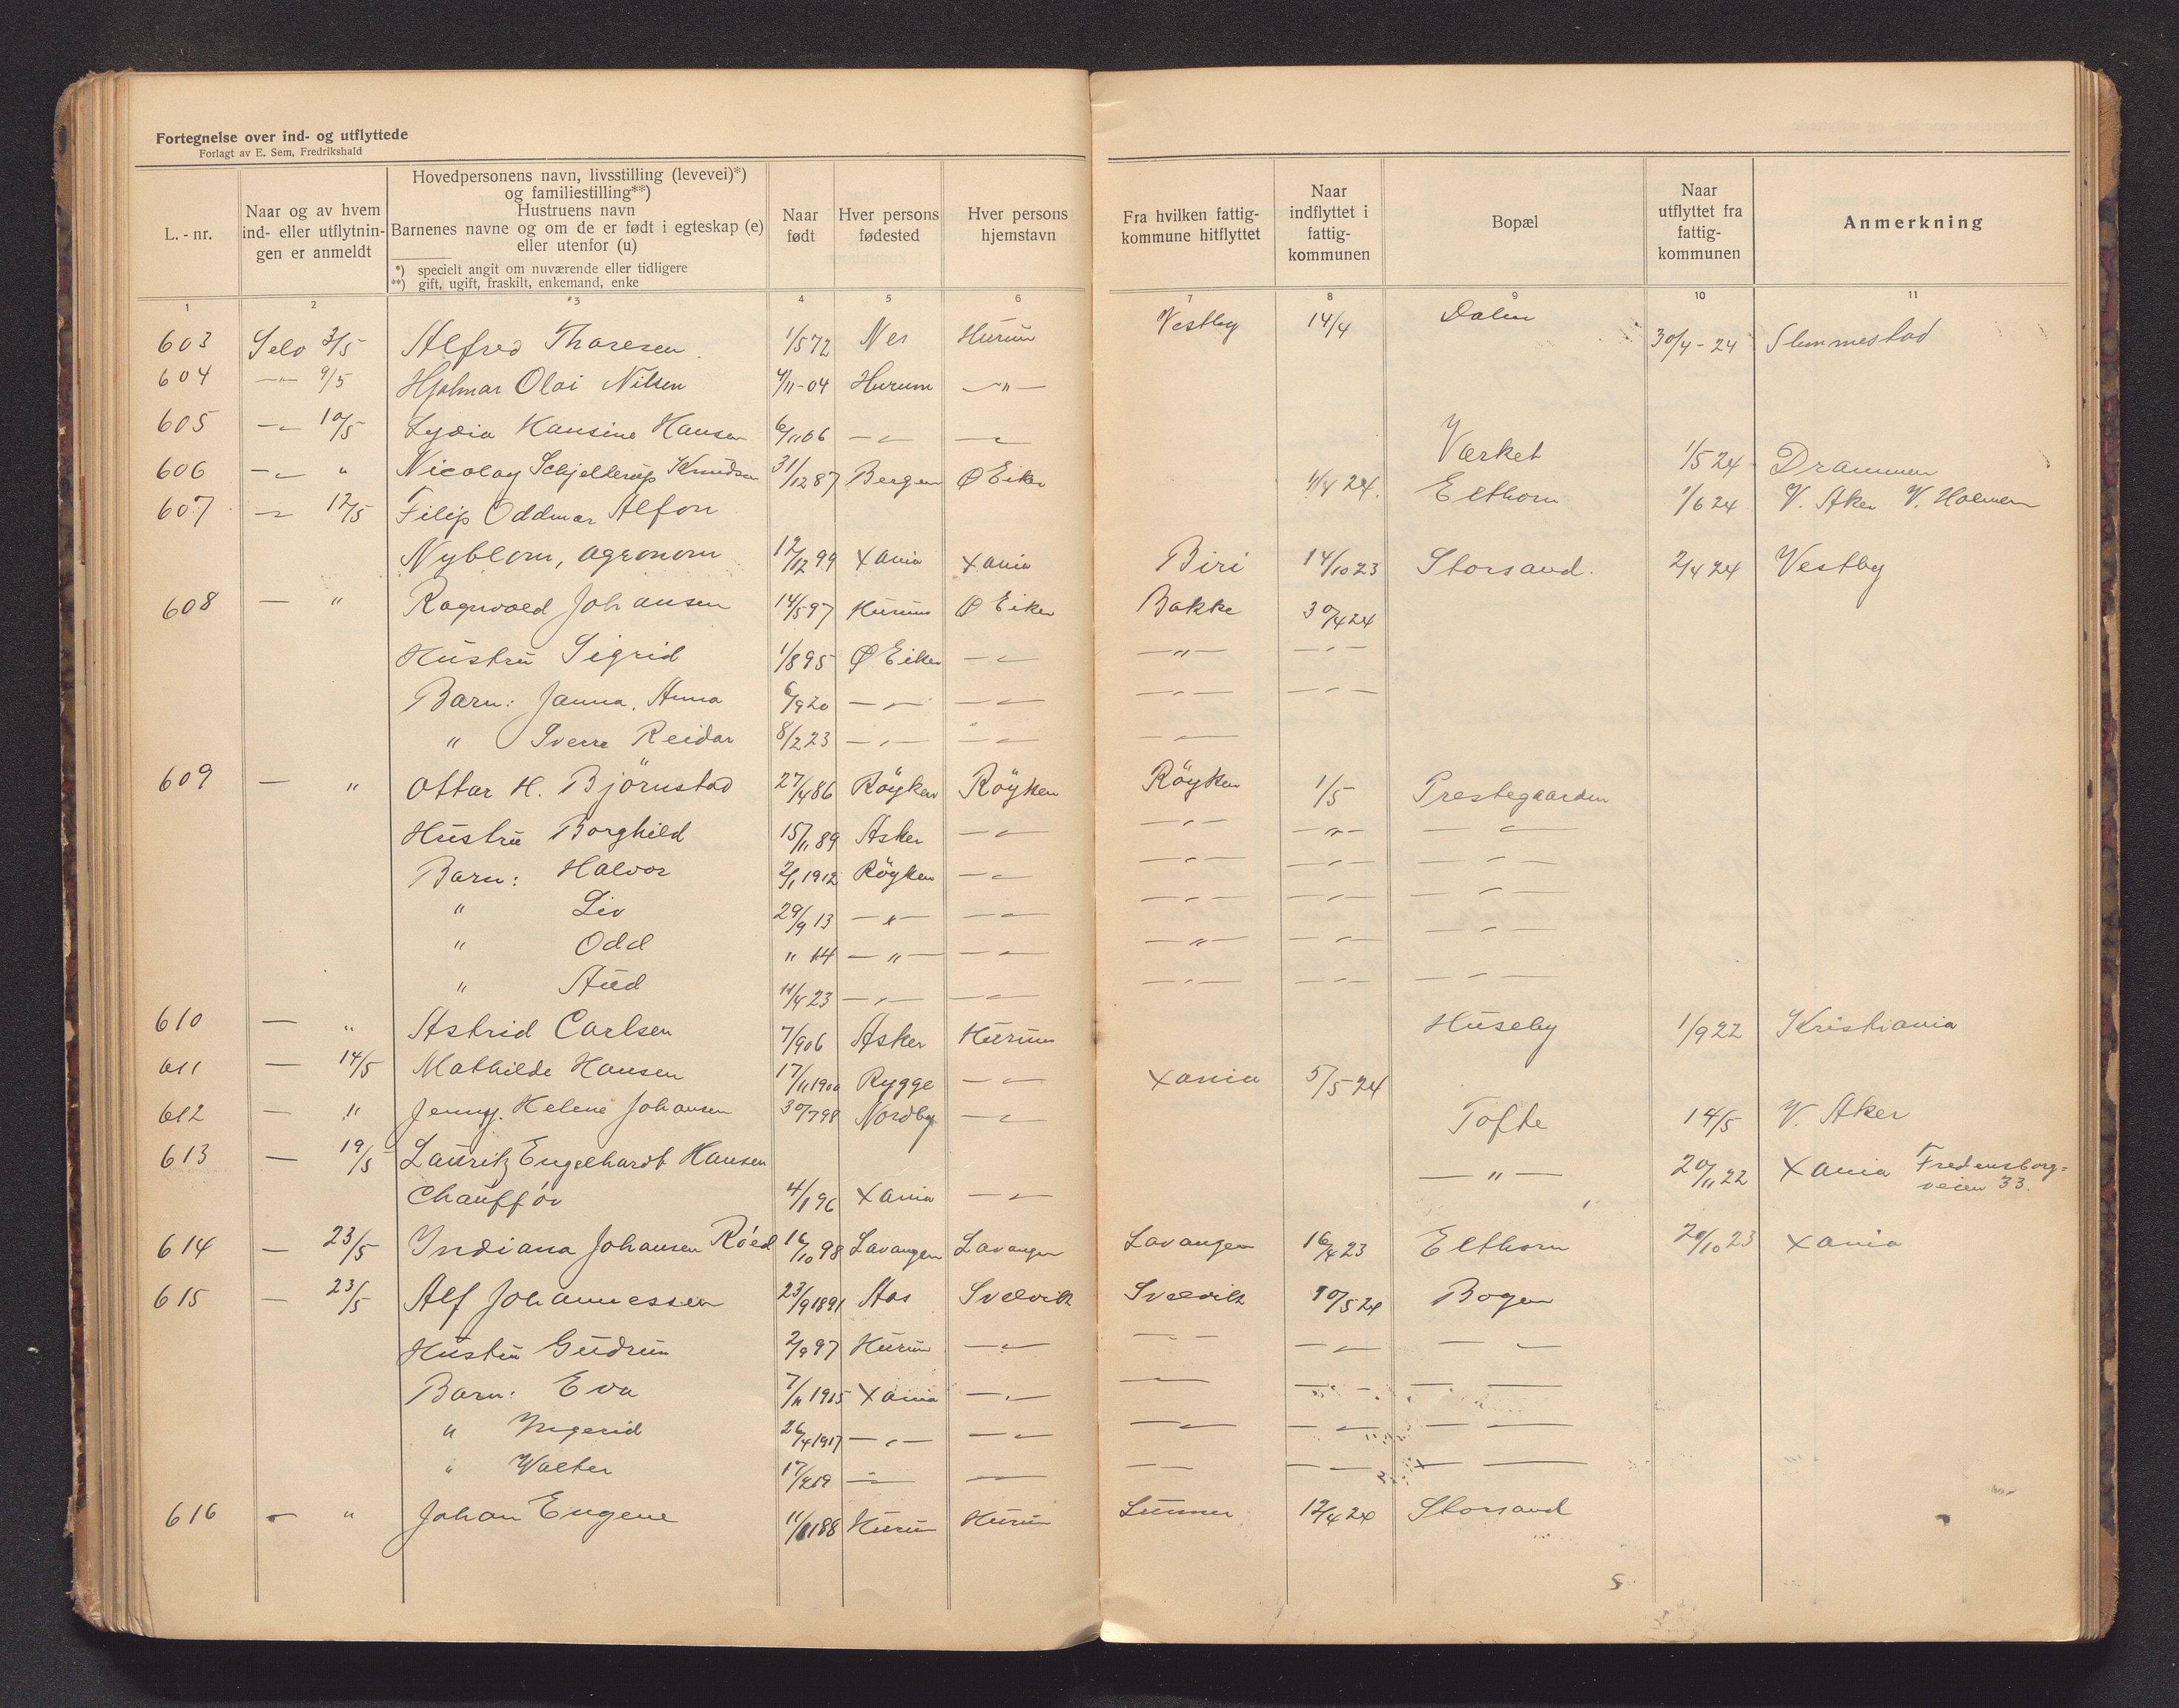 Fortegnelse over ind- og utflyttede
Forlagt av E. Sem, Fredrikshald
L.-nr.
Naar og av hvem ind- eller utflytningen er anmeldt
Hovedpersonens navn, livsstilling (levevei)*)
og familiestilling**)
Hustruens navn
Barnenes navne og om de er født i egteskap (e)
eller utenfor (u)
*) specielt angit om nuværende eller tidligere
**) gift, ugift, fraskilt, enkemand, enke
Naar født
Hver persons fødested
Hver persons hjemstavn
Fra hvilken fattigkommune hitflyttet
Naar indflyttet i fattigkommunen
Bopæl
Naar utflyttet fra fattigkommunen
Anmerkning
1 2 3 4 5 6 7 8 9 10 11
603 Selv 3/5 Alfred Thoresen 1/5 72 Nes Hurum Vestby 14/4 Dalen 30/4-24 Slemmestad
604 -"- 9/5 Hjalmar Olai Nilsen 4/11-04 Hurum -"-
605 -"- 10/5 Lydia Hansine Hansen 6/11 06 -"- -"- Værket 1/5 24 Drammen
606 -"- " Nicolay Schjelderup Knudsen 31/12 87 Bergen Ø Eiker 1/4 24. Elthorn 1/6 24 V. Aker V. Holmen
607 -"- 12/5 Filip Oddmar Alfon
Nyblom, agronom 12/12 99 Xania Xania Biri 14/10 23 Storsand. 2/4 24 Vestby
608 - " Ragnvald Johansen 14/5 97 Hurum Ø Eiker Bakke 30/4 24
Hustru Sigrid 1/8 95 Ø Eiker -"- -"- -"-
Barn: Janna. Anna 6/9 20 -"- -"- -"- -"-
" Sverre Reidar 8/2 23 -"- -"- -"-
609 - " Ottar H. Björnstad 27/4 86 Röyken Röyken Röyken 1/5 Prestegaarden
Hustru Borghild 15/11 89 Asker -"- -"- -"- -"-
Barn: Halvor 2/1 1912 Röyken -"- -"- -"- -"-
" Liv 29/9 13 -"- -"- -"- -"- -"-
" Odd " 14 -"- -"- -"- -"- -"-
" Aud 11/4 23 -"- -"- -"- -"- -"-
610 - " Astrid Carlsen 7/9 06 Asker Hurum Huseby 1/9 22 Kristiania
611 - 14/5 Mathilde Hansen 17/11 1900 Rygge -"- Xania 5/5 24
612 - " Jenny. Helene Johansen 30/7 98 Nordby -"- Tofte 14/5 V. Aker
613 - 19/5 Lauritz Engelhardt Hansen
Chauffør 4/1 96 Xania -"- -"- 20/11 22 Xania Fredensborg=
veien 33.
614 - 23/5 Indiana Johansen Röed 16/10 98 Lavangen Lavangen Lavangen 16/4 23 Elthorn 20/10 23 Xania
615 - 23/5 Alf Johannessen 23/9 1891 Aas Svelvik Svelvik 10/5 24 Bogen
Hustru Gudrun 2/9 97 Hurum -"- - - -"- - -
Barn: Eva 7/11 1915 Xania -"- - - - - -
" Yngerid 26/4 1917 -"- -"- -"- -"- - -
" Walter 17/2 19 -"- - - - - - - -
616 - " Johan Eugene 11/11 88 Hurum Hurum Lunner 12/4 24 Storsand